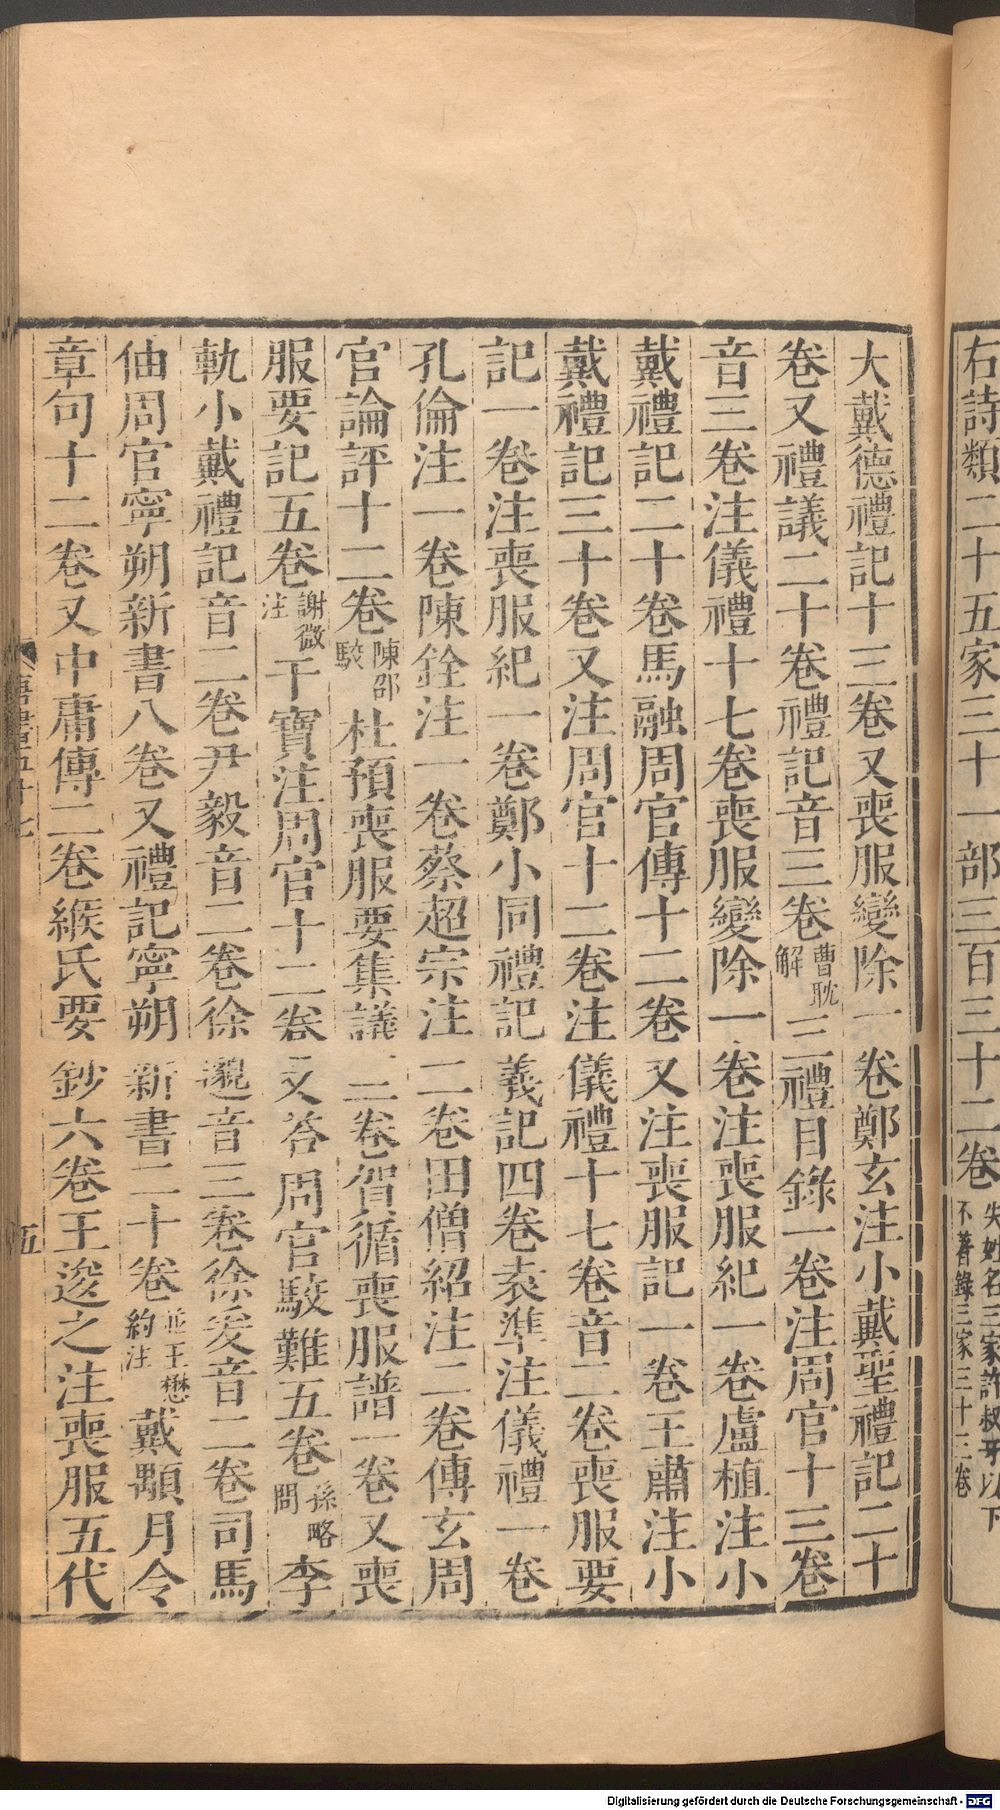 右詩類二十五家三十一部三百三十二卷失姓名三家許叔牙以下不著錄三家三十三卷
大戴德禮記十三卷又喪服變除一卷鄭玄注小戴聖禮記二十
卷又禮議二十卷禮記音三卷曹耽解三禮目錄一卷注周官十三卷
音三卷注儀禮十七卷喪服變除一卷注喪服紀一卷盧植注小
戴禮記二十卷馬融周官傳十二卷又注喪服記一卷王肅注小
戴禮記三十卷又注周官十二卷注儀禮十七卷音二卷喪服要
記一卷注喪服紀一卷鄭小同禮記義記四卷袁準注儀禮一卷
孔倫注一卷陳銓注一卷蔡超宗注二卷田僧紹注二卷傳玄周
官論評十二卷陳邵駮杜預喪服要集議三卷賀循喪服譜一卷又喪
服要記五卷謝微注干寶注周官十二卷又答周官駮難五卷孫略問李
軌小戴禮記音二卷尹毅音二卷徐邈音三卷徐爰音二卷司馬
伷周官寧朔新書八卷又禮記寧朔新書二十卷並王懋約注戴顒月令
章句十二卷又中庸傳二卷緱氏要鈔六卷王逡之注喪服五代
五
Digitalisierung gefördert durch die Deutsche Forschungsgemeinschaft - DFG